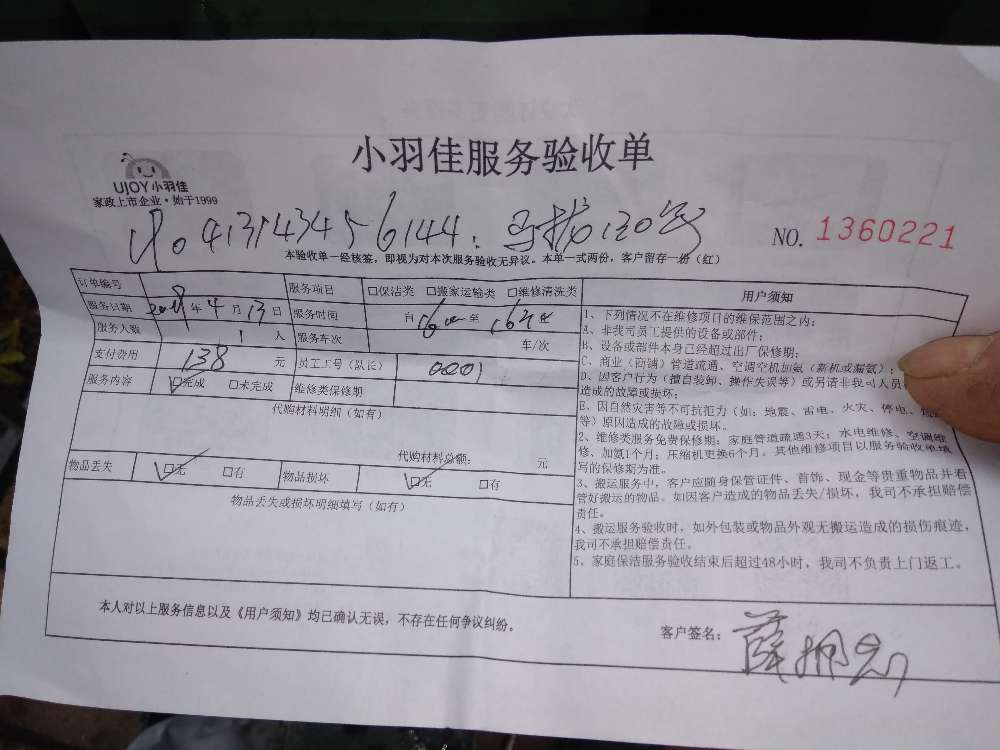 小羽佳服务验收单
UJOY小羽佳
家政上市企业·始于1999
NO. 1360221
本验收单一经核签，即视为对本次服务验收无异议。本单一式两份，客户留存一份（红）
订单编号 服务项目 □保洁类 □搬家运输类 □维修清洗类
服务日期 年 4 月 13 日 服务时间 自 至
服务人数 1 人 服务车次 车/次
支付费用 138 元 员工工号（队长） 0001
服务内容 □完成 □未完成 维修类保修期
代购材料明细（如有）
代购材料总额： 元
物品丢失 □无 □有 物品损坏 □无 □有
物品丢失或损坏明细填写（如有）
用户须知
1、下列情况不在维修项目的维保范围之内：
A、非我司员工提供的设备或部件；
B、设备或部件本身已经超过出厂保修期；
C、商业（商铺）管道疏通、空调空机加氨（新机或漏氨）；
D、因客户行为（擅自装卸、操作失误等）或另请非我司人员
造成的故障或损坏；
E、因自然灾害等不可抗拒力（如：地震、雷电、火灾、停电、
等）原因造成的故障或损坏。
2、维修类服务免费保修期：家庭管道疏通3天；水电维修、空调维
修、加氨1个月；压缩机更换6个月。其他维修项目以服务验收单填
写的保修期为准。
3、搬运服务中，客户应随身保管证件、首饰、现金等贵重物品并看
管好搬运的物品。如因客户造成的物品丢失/损坏，我司不承担赔偿
责任。
4、搬运服务验收时，如外包装或物品外观无搬运造成的损伤痕迹，
我司不承担赔偿责任。
5、家庭保洁服务验收结束后超过48小时，我司不负责上门返工。
本人对以上服务信息以及《用户须知》均已确认无误，不存在任何争议纠纷。
客户签名：